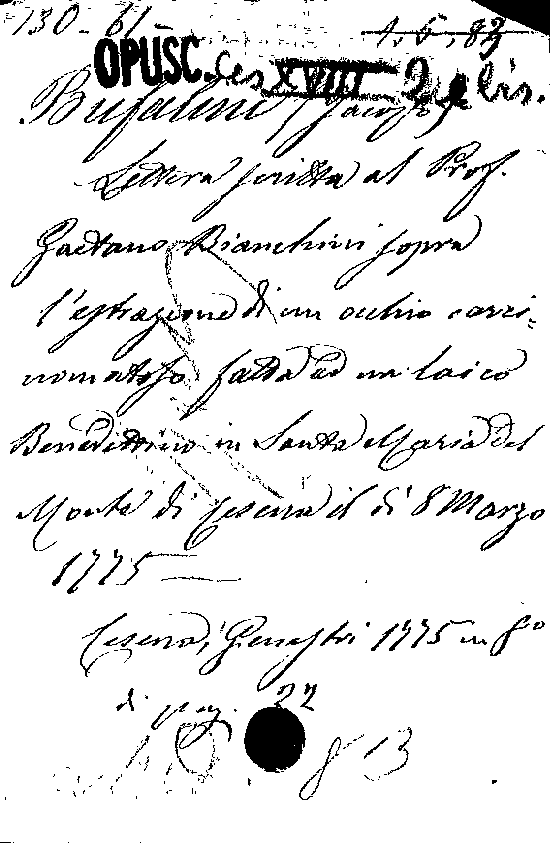 130-61 1.6.83
OPUSC. Ces XVIII 2 bis.
Bufalini, Jacopo,
Lettera scritta al Prof.
Gaetano Bianchini sopra
l'estrazione di un occhio carci=
nomatoso fatta ad un laico
Benedittino in Santa Maria del
Monte di Cesena il dì 8 Marzo
1775 —
Cesena, Genestri 1775 in 8°
di pag. 22